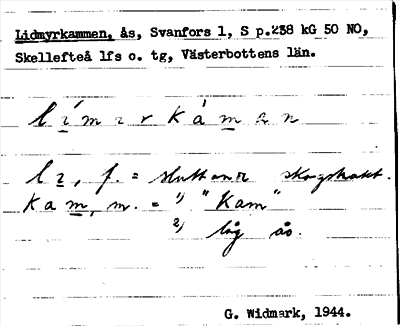 Lidmyrkammen, ås, Svanfors 1, S p.238 kG 50 NO,
Skellefteå lfs o. tg, Västerbottens län.
l í m ɪ r k à m a n
l ɪ, f. = sluttande skogstrakt.
k a m, m. = 1) "Kam"
2) låg ås.
G. Widmark, 1944.